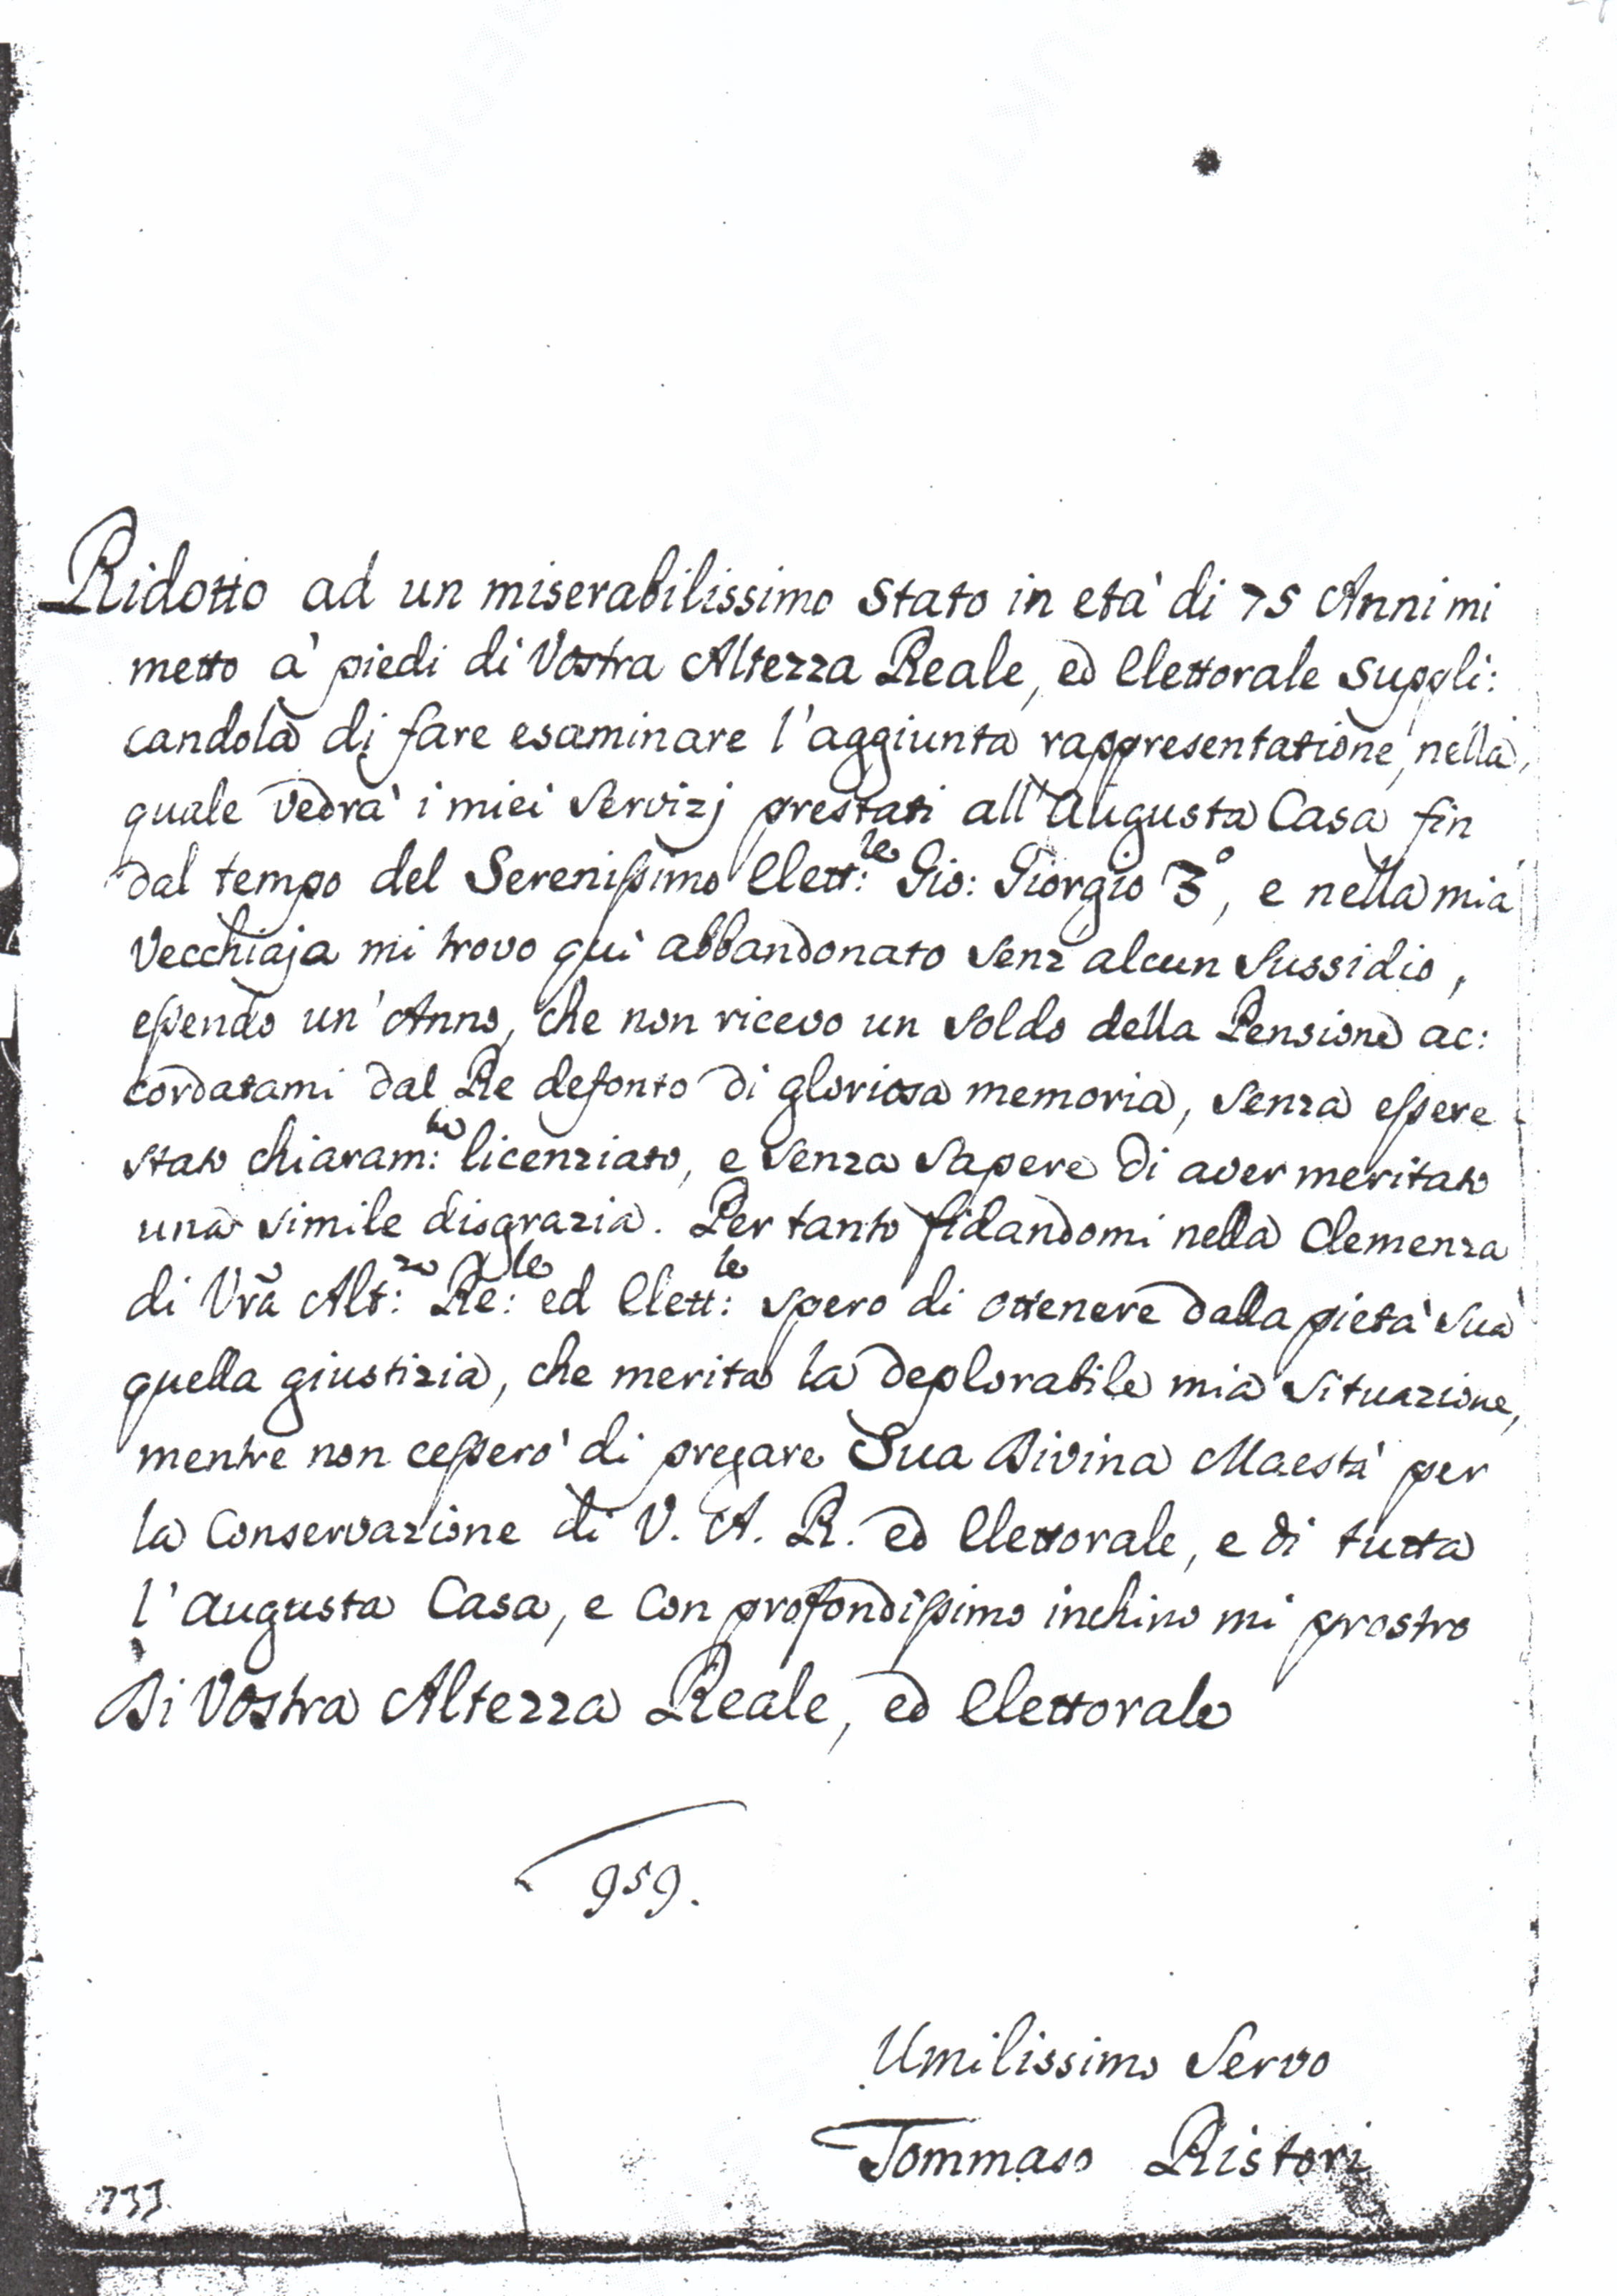 Ridotto ad un miserabilissimo Stato in età di 75 Anni mi
metto a' piedi di Vostra Altezza Reale, ed Elettorale Suppli:
candola di fare esaminare l'aggiunta rappresentatione, nella
quale vedrà i miei Servizj prestati all'Augusta Casa fin
dal tempo del Serenissimo Elett:le Gio: Giorgio 3°, e nella mia
Vecchiaja mi trovo quì abbandonato Senz alcun Sussidio,
essendo un'Anno, che non ricevo un Soldo della Pensione ac:
cordatami dal Re defonto di gloriosa memoria, Senza essere
stato chiaram:te licenziato, e Senza Sapere di aver meritato
una simile disgrazia. Per tanto fidandomi nella Clemenza
di Vrã Alt:za Re:le ed Elett:le spero di ottenere dalla pietà Sua
quella giustizia, che merita la deplorabile mia Situazione,
mentre non cesserò di pregare Sua Divina Maestà per
la Conservazione di V. A. R. ed Elettorale, e di tutta
l'Augusta Casa, e Con profondissimo inchino mi prostro
Di Vostra Altezza Reale, ed Elettorale
959.
Umilissimo Servo
Tommaso Ristori
1733